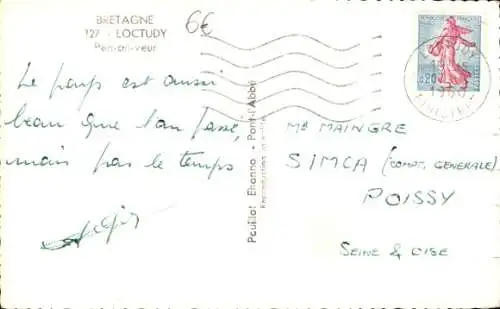 BRETAGNE
127 - LOCTUDY
Pen-an-veur
6€
Le pays est aussi
beau que l'an passé,
mais pas le temps
Pouillot Ehanno - Pont-l'Abbé
Reproduction interdite
0,20
Me MAINGRE
SIMCA (COMPT. GENERALE)
POISSY
SEINE & OISE